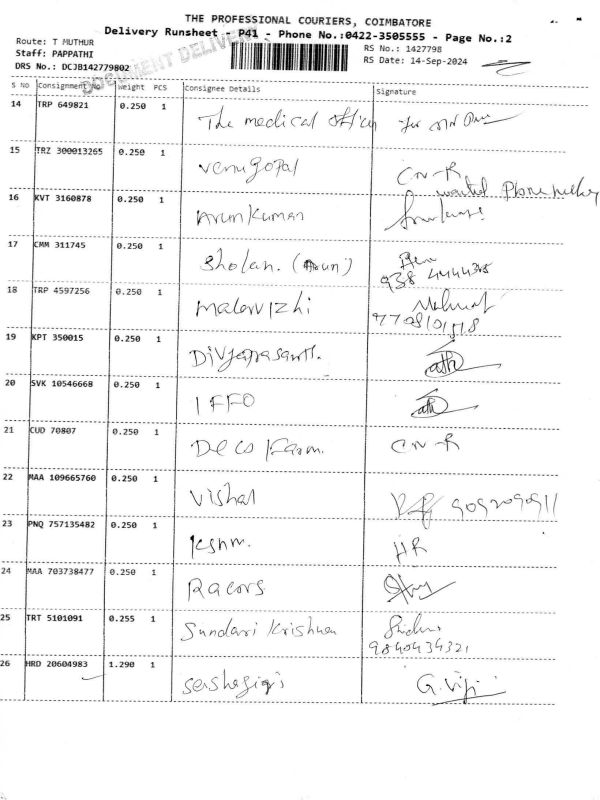 THE PROFESSIONAL COURIERS, COIMBATORE
Delivery Runsheet - P41 - Phone No.:0422-3505555 - Page No.:2
Route: T MUTHUR
RS No.: 1427798
Staff: PAPPATHI
RS Date: 14-Sep-2024
DRS No.: DCJB142779802
DOCUMENT DELIVERY
S NO Consignment No Weight PCS Consignee Details Signature
14 TRP 649821 0.250 1 The medical officer
15 TRZ 300013265 0.250 1 Venugopal CN-R
wanted Phone
16 KVT 3160878 0.250 1 Arunkumar
17 CMM 311745 0.250 1 Sholan. (Arun)
938
18 TRP 4597256 0.250 1 malarvizhi
19 KPT 350015 0.250 1
20 SVK 10546668 0.250 1 IFFO
21 CUD 70807 0.250 1 Decs Farm. CN-R
22 MAA 109665760 0.250 1 Vishal 9092090911
23 PNQ 757135482 0.250 1 HR
24 MAA 703738477 0.250 1 Racors
25 TRT 5101091 0.255 1 Sundari Krishnan
9840434321
26 HRD 20604983 1.290 1 Seshagiri G.Viji